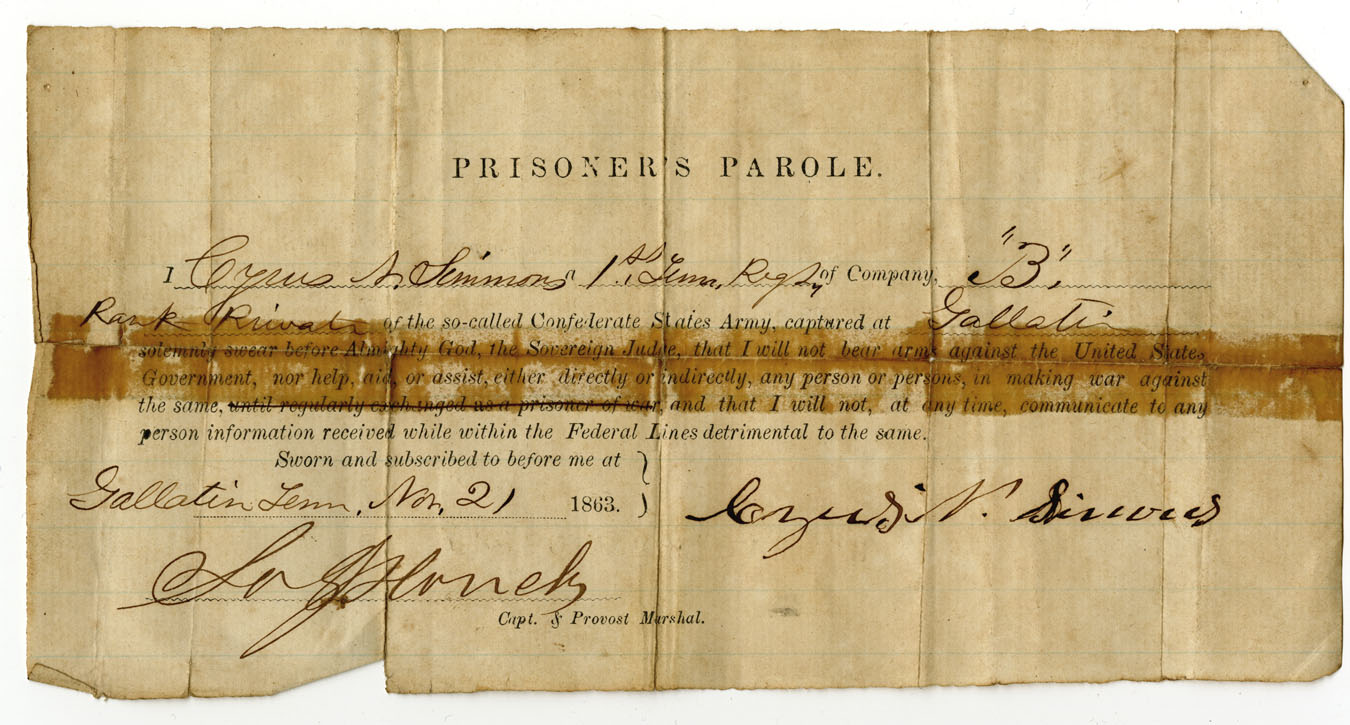 PRISONER'S PAROLE.
I Cyrus N. Simmons a 1st. Tenn, Regt, of Company, "B",
Rank Private of the so-called Confederate States Army, captured at Gallatin
solemnly swear before Almighty God, the Sovereign Judge, that I will not bear arms against the United States
Government, nor help, aid, or assist, either directly or indirectly, any person or persons, in making war against
the same, until regularly exchanged as a prisoner of war, and that I will not, at any time, communicate to any
person information received while within the Federal Lines detrimental to the same.
Sworn and subscribed to before me at
Gallatin Tenn, Nov, 21 1863.
Cyrus N. Simons
Capt. & Provost Marshal.